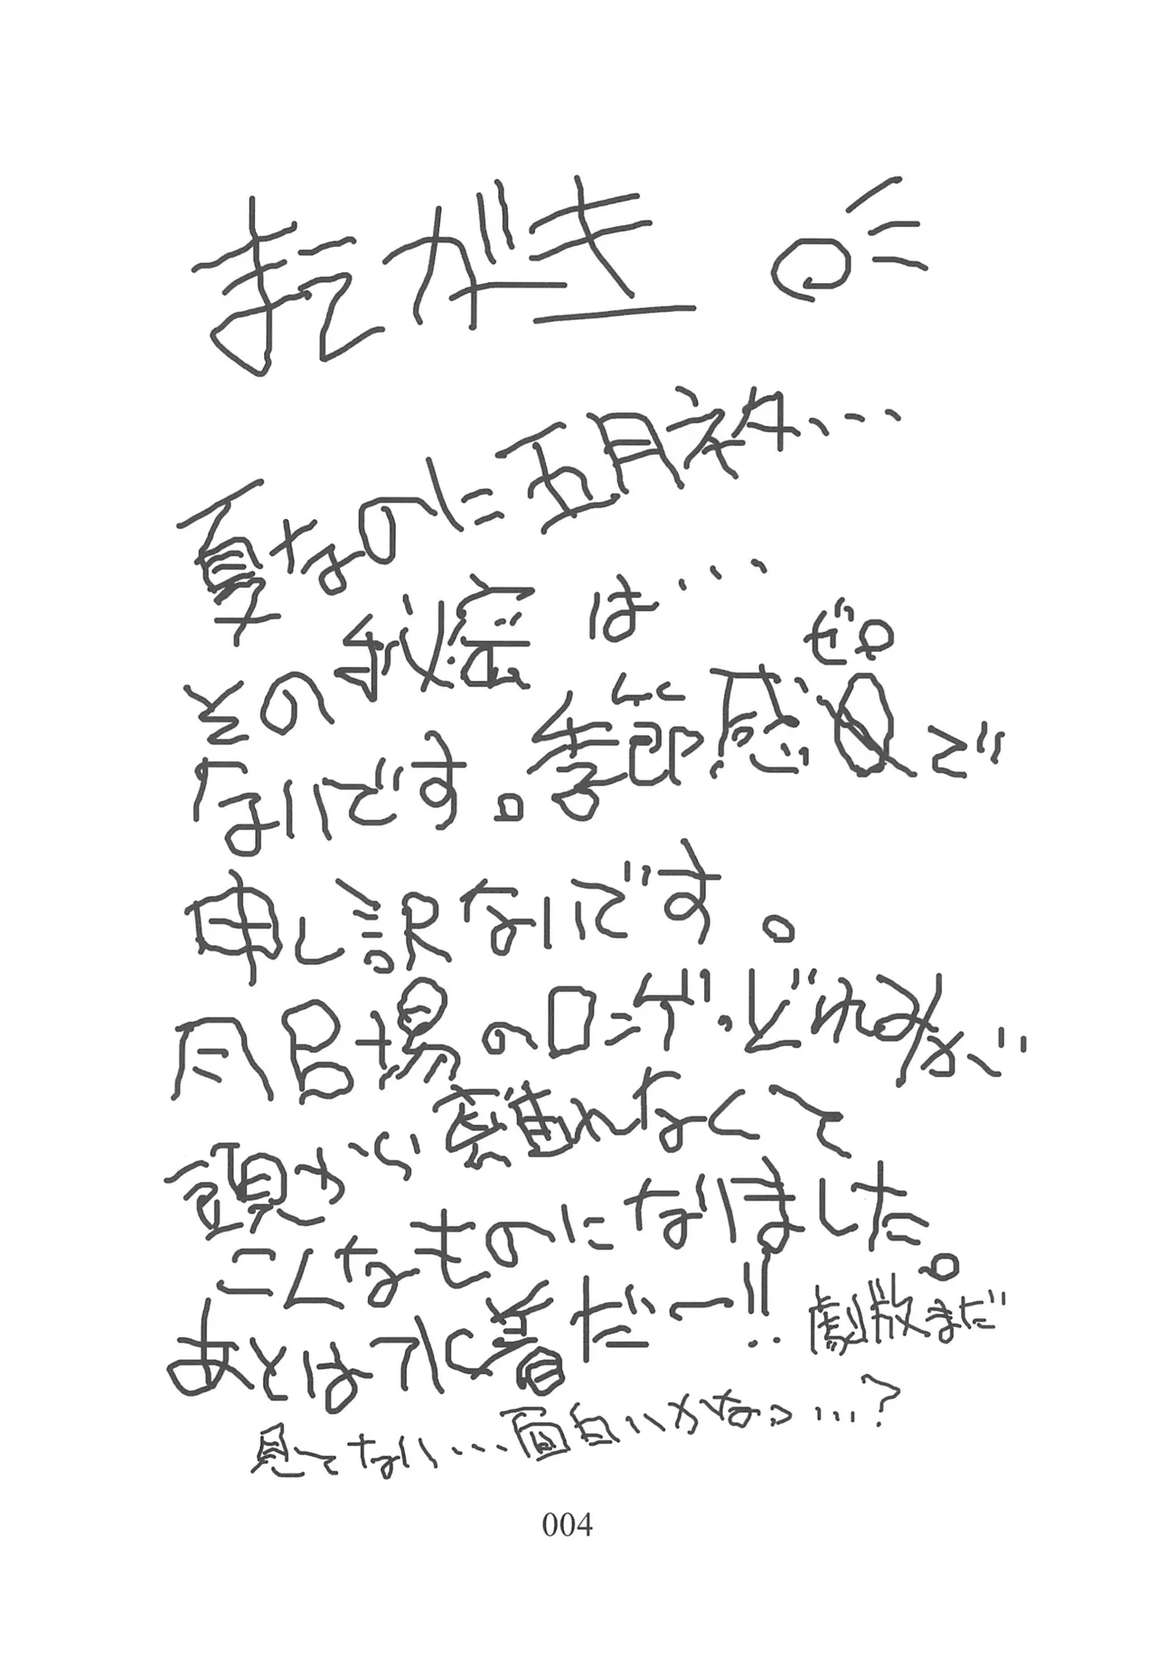 まえがき
夏なのに五月ネタ…
その秘密は…
ないです。季節感0で
ゼロ
申し訳ないです。
円呂場のロニゲ・どれみが
頭から離れなくて
こんなものになりました。
あとは水着だー!!
劇散まだ
見てない…面白いかなっ…?
004